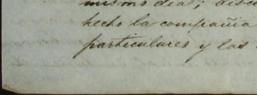 mismo dia; disc
hecho la compañia
particulares y las